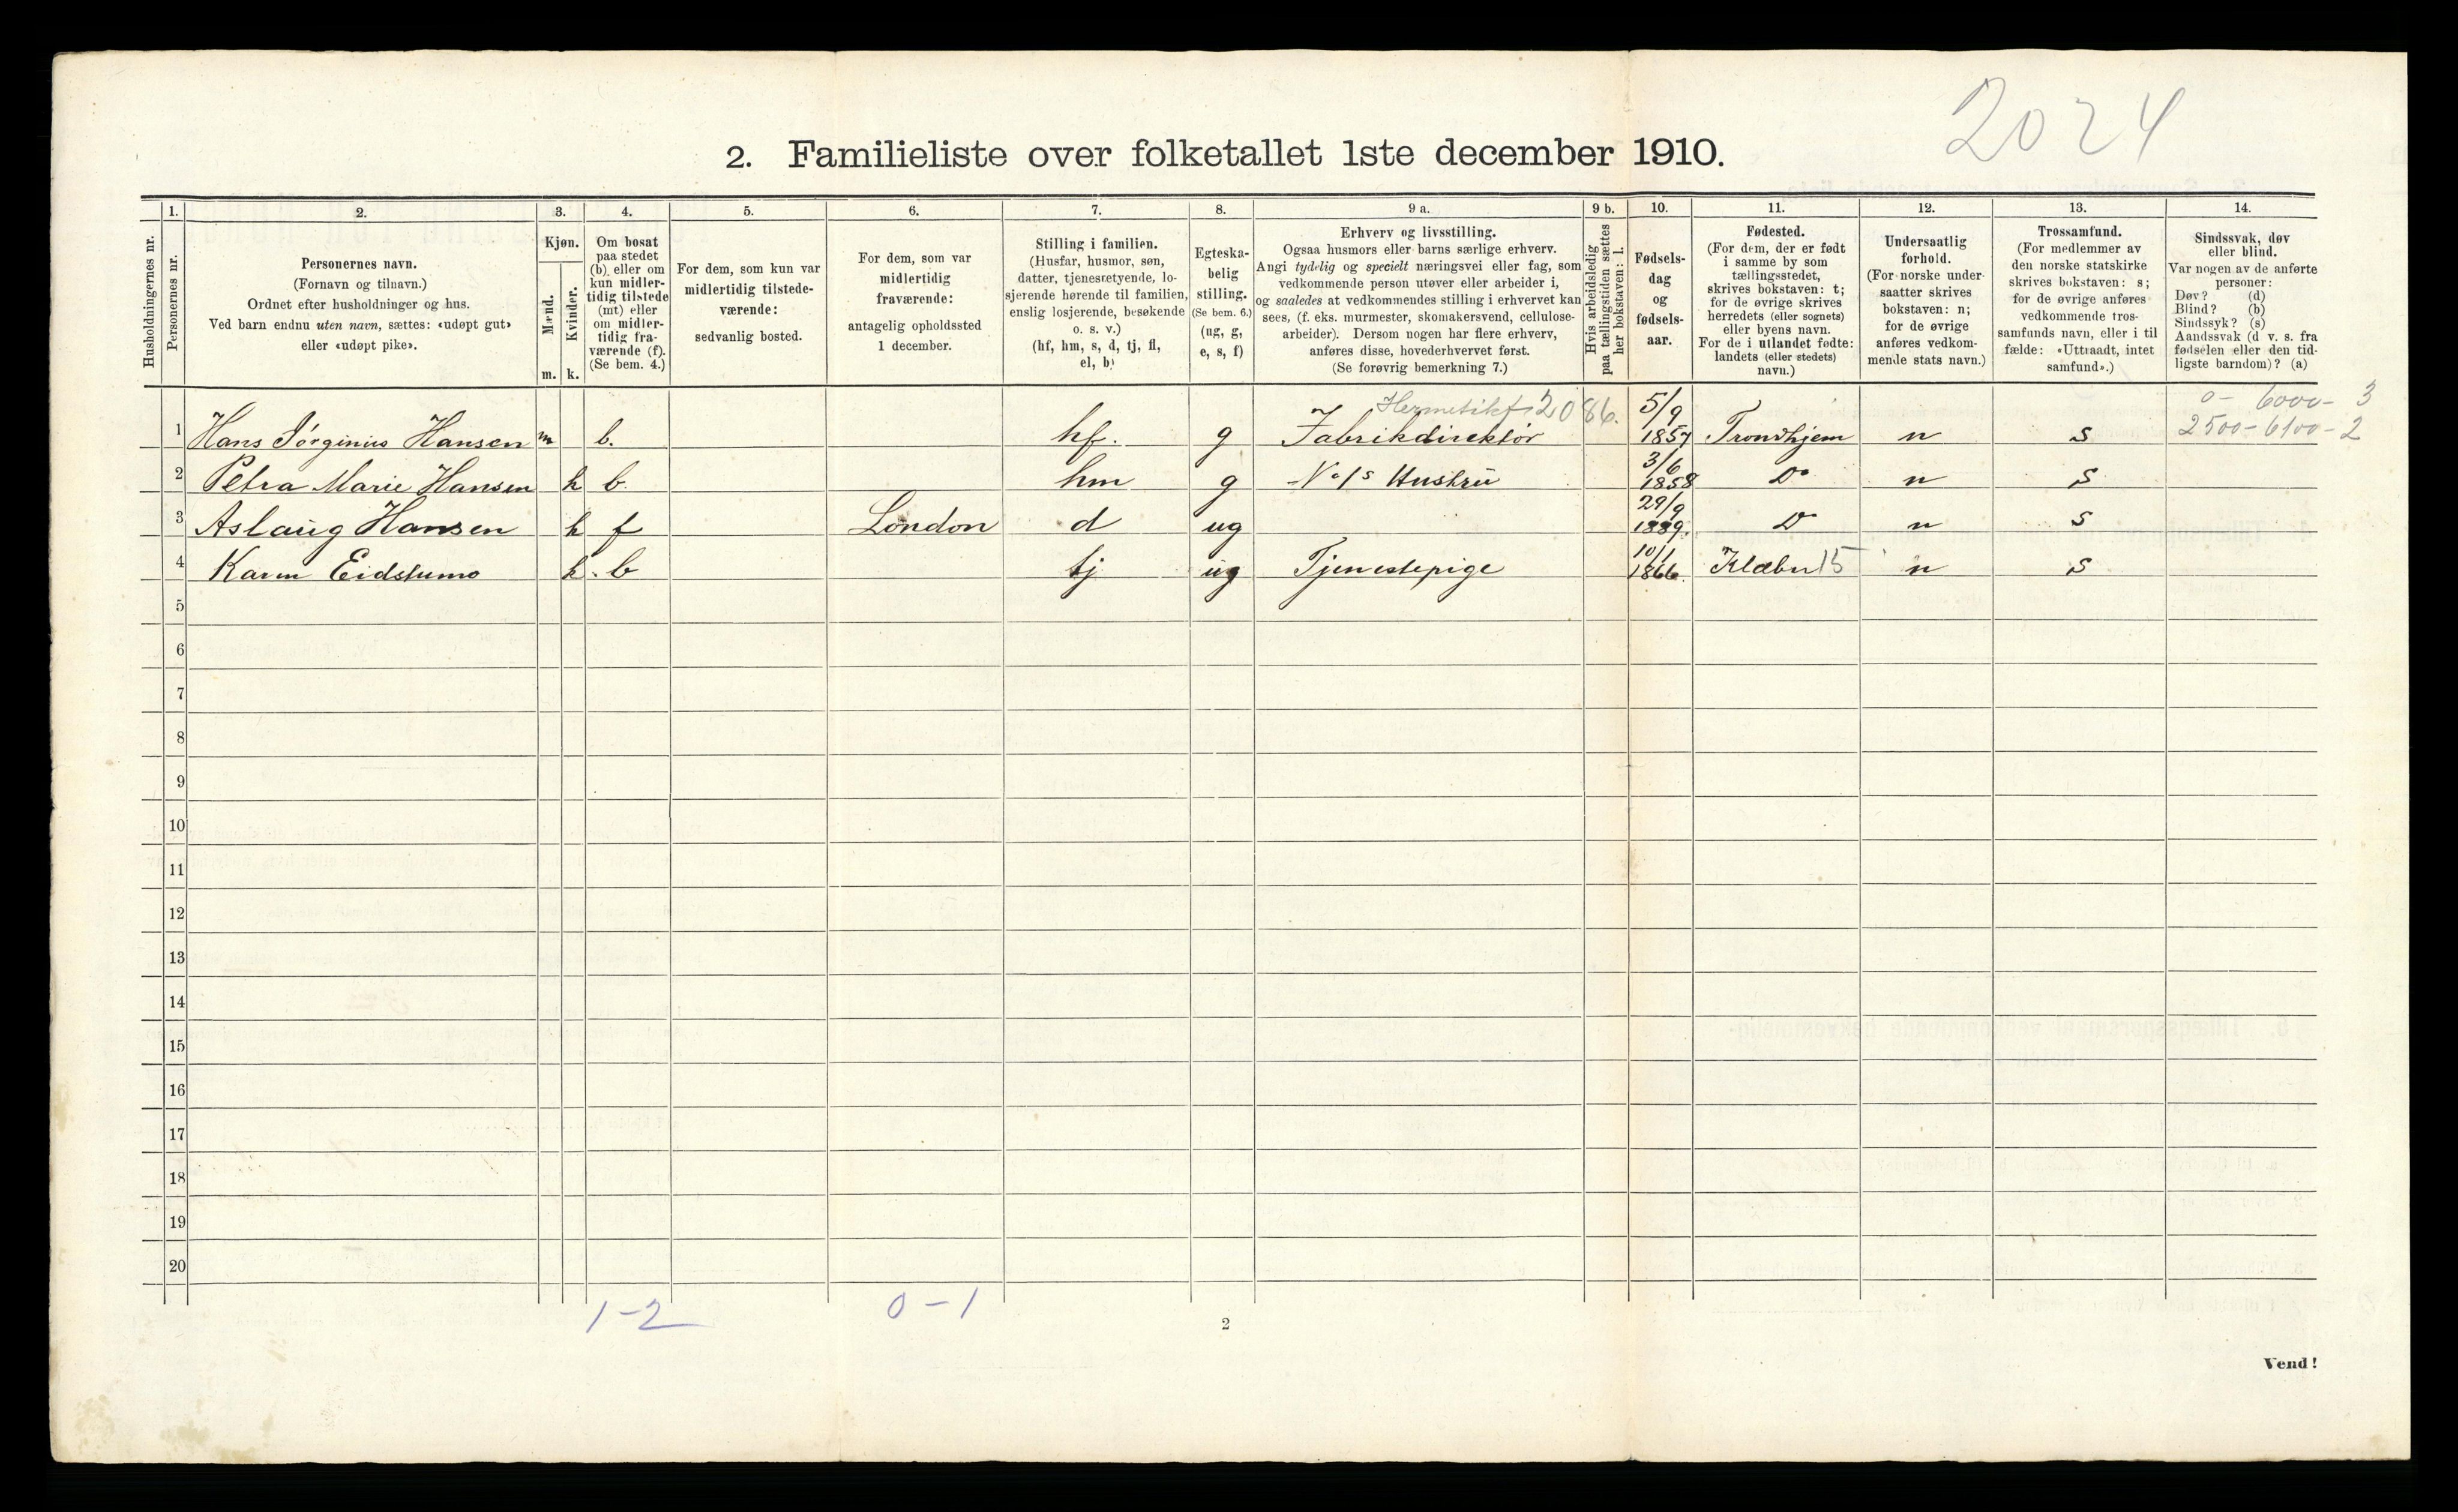 2024
2. Familieliste over folketallet 1ste december 1910.
Husholdningernes nr.
1.
Personernes nr.
2.
Personernes navn.
(Fornavn og tilnavn.)
Ordnet efter husholdninger og hus.
Ved barn endnu uten navn, sættes: «udøpt gut»
eller «udøpt pike».
3.
Kjøn.
Mænd.
Kvinder.
m. k.
4.
Om bosat
paa stedet
(b) eller om
kun midler-
tidig tilstede
(mt) eller
om midler-
tidig fra-
værende (f).
(Se bem. 4.)
5.
For dem, som kun var
midlertidig tilstede-
værende:
sedvanlig bosted.
6.
For dem, som var
midlertidig
fraværende:
antagelig opholdssted
1 december.
7.
Stilling i familien.
(Husfar, husmor, søn,
datter, tjenestetyende, lo-
sjerende hørende til familien,
enslig losjerende, besøkende
o. s. v.)
(hf, hm, s, d, tj, fl,
el, b)
8.
Egteska-
belig
stilling.
(Se bem. 6.)
(ug, g,
e, s, f)
9 a.
Erhverv og livsstilling.
Ogsaa husmors eller barns særlige erhverv.
Angi tydelig og specielt næringsvei eller fag, som
vedkommende person utøver eller arbeider i,
og saaledes at vedkommendes stilling i erhvervet kan
sees, (f. eks. murmester, skomakersvend, cellulose-
arbeider). Dersom nogen har flere erhverv,
anføres disse, hovederhvervet først.
(Se forøvrig bemerkning 7.)
9 b.
Hvis arbeidsledig
paa tællingstiden sættes
her bokstaven: l.
10.
Fødsels-
dag
og
fødsels-
aar.
11.
Fødested.
(For dem, der er født
i samme by som
tællingsstedet,
skrives bokstaven: t;
for de øvrige skrives
herredets (eller sognets)
eller byens navn.
For de i utlandet fødte:
landets (eller stedets)
navn.)
12.
Undersaatlig
forhold.
(For norske under-
saatter skrives
bokstaven: n;
for de øvrige
anføres vedkom-
mende stats navn.)
13.
Trossamfund.
(For medlemmer av
den norske statskirke
skrives bokstaven: s;
for de øvrige anføres
vedkommende tros-
samfunds navn, eller i til
fælde: «Uttraadt, intet
samfund».)
14.
Sindssvak, døv
eller blind.
Var nogen av de anførte
personer:
Døv? (d)
Blind? (b)
Sindssyk? (s)
Aandssvak (d v. s. fra
fødselen eller den tid-
ligste barndom)? (a)
Hermetikf 2086. 0 - 6000 - 3
1 Hans Jørginius Hansen m b. hf. g Fabrikdirektør 5/9 1857 Trondhjem n s 2500 - 6100 - 2
2 Petra Marie Hansen k b. hm g No 1s Hustru 3/6 1858 Do n s
3 Aslaug Hansen k f London d ug 29/9 1889. Do n s
4 Karen Eidstumo k. b tj ug Tjenestepige 10/1 1866. Klæbu 15 n s
5
6
7
8
9
10
11
12
13
14
15
16
17
18
19
20
1 - 2 0 - 1
2
Vend!